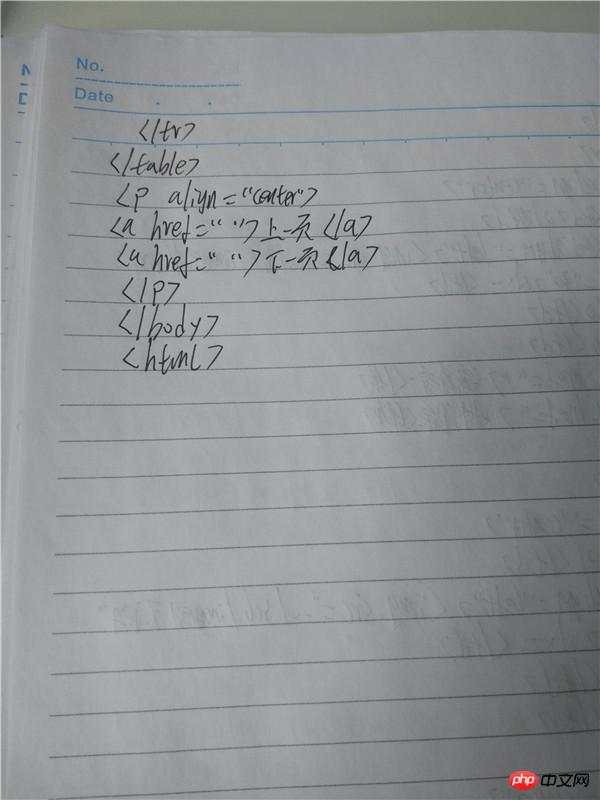 No.
Date . .
</tr>
</table>
<p align="center">
<a href=" ">上一页</a>
<a href=" ">下一页</a>
</p>
</body>
<html>
php 中文网